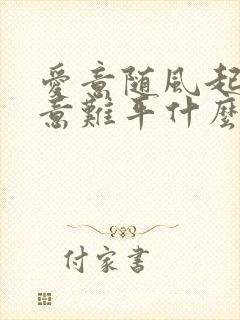 愛意随风起
意難平什麼
付家書